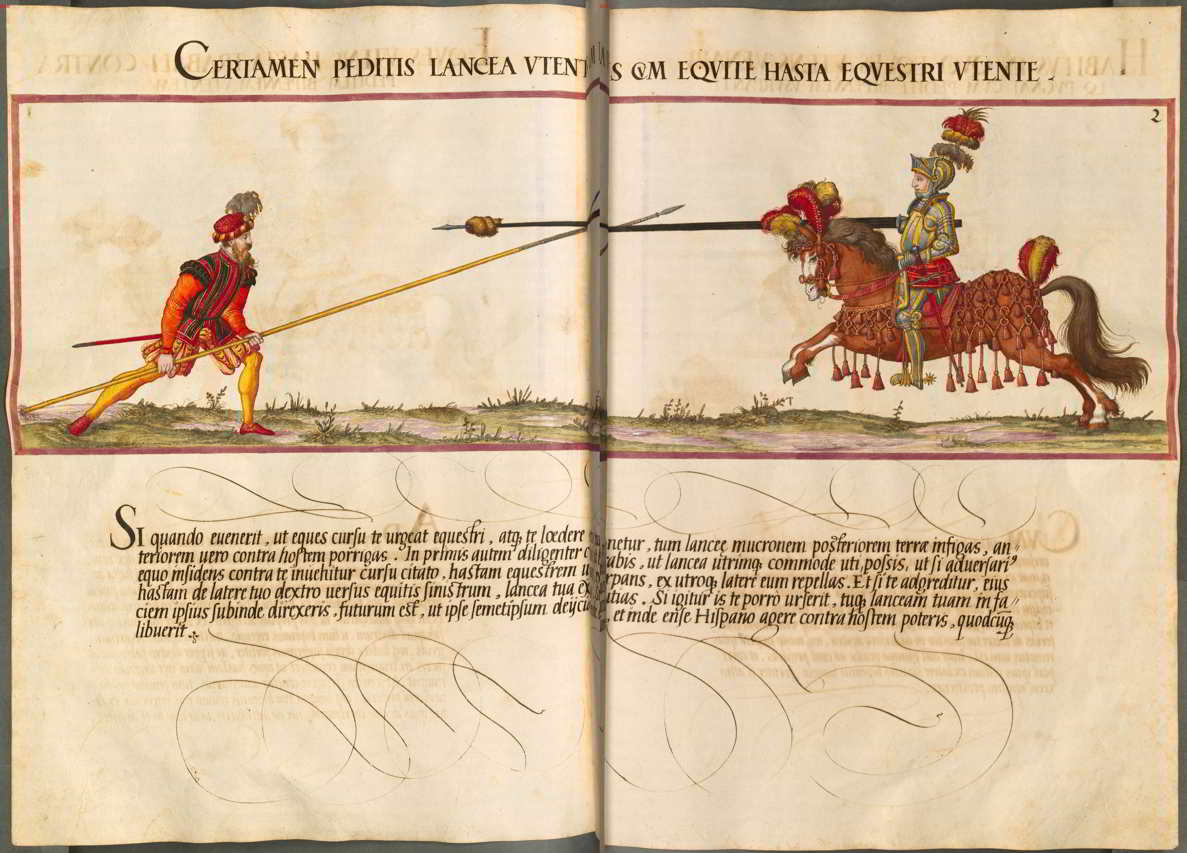 CERTAMEN PEDITIS LANCEA VTENTIS CVM EQVITE HASTA EQVESTRI VTENTE.
2
SI quando euenerit, ut eques cursu te urgeat equestri, atq; te lœdere netur, tum lanceę mucronem posteriorem terrę infigas, an=
teriorem uero contra hostem porrigas. In primis autem diligenter abis, ut lancea utrimq; commode uti possis, ut si aduersari9
equo insidens contra te inuehitur cursu citato, hastam equestrem rpans, ex utroq; latere eum repellas. Et si te adgreditur, eius
hastam de latere tuo dextro uersus equitis sinistrum, lancea tua ex utias. Si igitur is te porrò urserit, tuq; lanceam tuam in fa=
ciem ipsius subinde direxeris, futurum est, ut ipse semetipsum deijcia et inde ense Hispano agere contra hostem poteris, quodcuq;
libuerit.